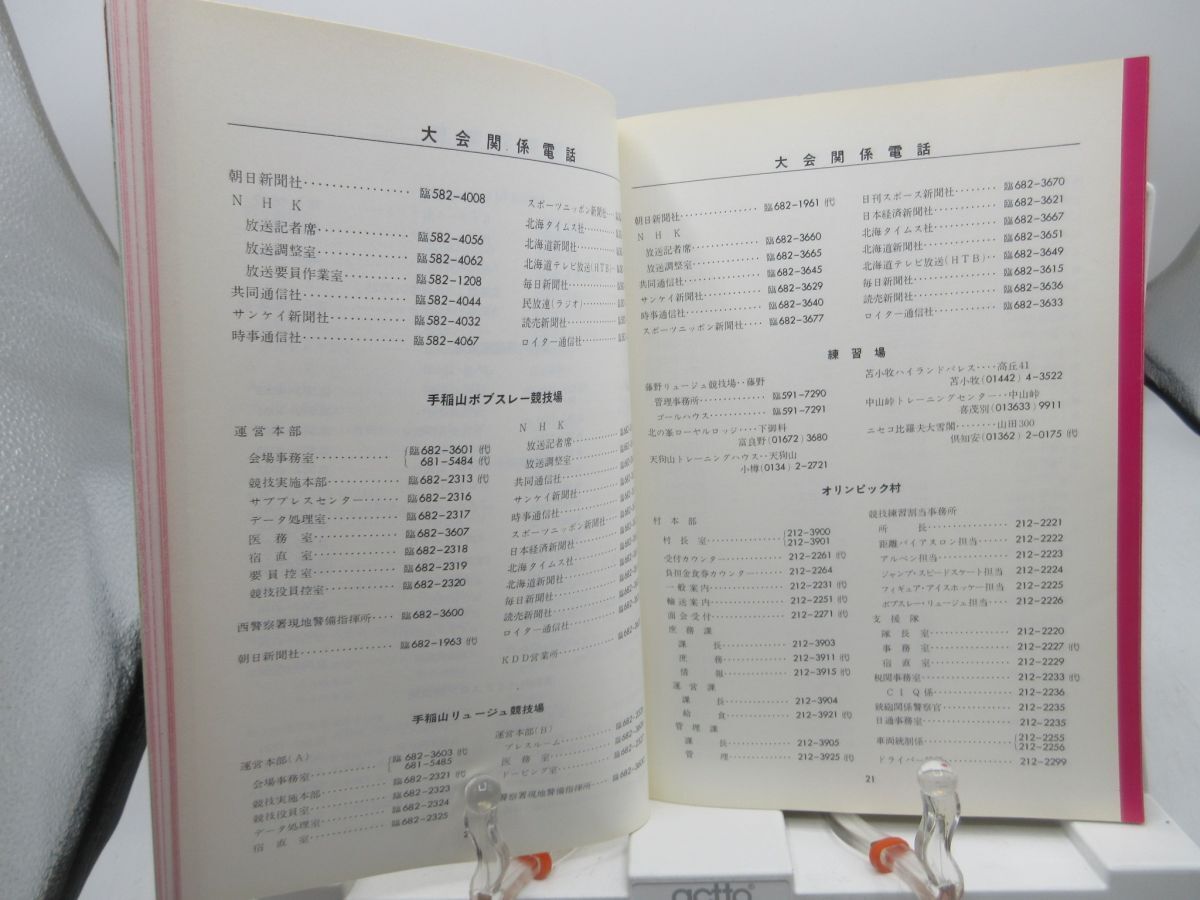 大会関係電話
朝日新聞社‥‥‥‥‥‥ 臨582-4008
N H K
放送記者席‥‥‥‥‥ 臨582-4056
放送調整室‥‥‥‥‥ 臨582-4062
放送要員作業室‥‥‥‥ 臨582-1208
共同通信社‥‥‥‥‥‥ 臨582-4044
サンケイ新聞社‥‥‥‥‥ 臨582-4032
時事通信社‥‥‥‥‥‥ 臨582-4067
スポーツニッポン新聞社‥‥
北海タイムス社‥‥‥
北海道新聞社‥‥‥
北海道テレビ放送(HTB)‥
毎日新聞社‥‥‥‥
民放連(ラジオ)‥‥‥
読売新聞社‥‥‥‥
ロイター通信社‥‥‥
手稲山ボブスレー競技場
運営本部
会場事務室‥‥‥‥‥ 臨682-3601 代
681-5484 代
競技実施本部‥‥‥‥‥ 臨682-2313 代
サブプレスセンター‥‥‥ 臨682-2316
データ処理室‥‥‥‥‥ 臨682-2317
医務室‥‥‥‥‥ 臨682-3607
宿直室‥‥‥‥‥ 臨682-2318
要員控室‥‥‥‥‥ 臨682-2319
競技役員控室‥‥‥‥‥ 臨682-2320
西警察署現地警備指揮所‥‥ 臨682-3600
朝日新聞社‥‥‥‥‥‥ 臨682-1963 代
N H K
放送記者席‥‥‥‥
放送調整室‥‥‥‥
共同通信社‥‥‥‥
サンケイ新聞社‥‥‥
時事通信社‥‥‥‥
スポーツニッポン新聞社‥‥
日本経済新聞社‥‥‥
北海タイムス社‥‥‥
北海道新聞社‥‥‥
毎日新聞社‥‥‥‥
読売新聞社‥‥‥‥
ロイター通信社‥‥‥
KDD営業所‥‥‥‥
手稲山リュージュ競技場
運営本部(A)
会場事務室‥‥‥‥‥ 臨682-3603 代
681-5485
競技実施本部‥‥‥‥‥ 臨682-2321 代
競技役員室‥‥‥‥‥ 臨682-2323
データ処理室‥‥‥‥‥ 臨682-2324
宿直室‥‥‥‥‥ 臨682-2325
運営本部(B)
プレスルーム‥‥‥‥
医務室‥‥‥‥
ドーピング室‥‥‥‥
警察署現地警備指揮所‥‥ 臨682-3600
大会関係電話
朝日新聞社‥‥‥‥‥‥ 臨682-1961 代
N H K
放送記者席‥‥‥‥‥ 臨682-3660
放送調整室‥‥‥‥‥ 臨682-3665
共同通信社‥‥‥‥‥‥ 臨682-3645
サンケイ新聞社‥‥‥‥‥ 臨682-3629
時事通信社‥‥‥‥‥‥ 臨682-3640
スポーツニッポン新聞社‥‥ 臨682-3677
日刊スポーズ新聞社‥‥‥ 臨682-3670
日本経済新聞社‥‥‥‥ 臨682-3621
北海タイムス社‥‥‥‥ 臨682-3667
北海道新聞社‥‥‥‥‥ 臨682-3651
北海道テレビ放送(HTB)‥ 臨682-3649
毎日新聞社‥‥‥‥‥‥ 臨682-3615
読売新聞社‥‥‥‥‥‥ 臨682-3636
ロイター通信社‥‥‥‥ 臨682-3633
練習場
藤野リュージュ競技場‥藤野
管理事務所‥‥‥‥‥ 臨591-7290
ゴールハウス‥‥‥‥ 臨591-7291
北の峯ローヤルロッジ‥‥下御料
富良野(01672)3680
天狗山トレーニングハウス‥天狗山
小樽(0134)2-2721
苫小牧ハイランドパレス‥‥高丘41
苫小牧(01442)4-3522
中山峠トレーニングセンター‥中山峠
喜茂別(013633)9911
ニセコ比羅夫大雪閣‥‥山田300
倶知安(01362)2-0175 代
オリンピック村
村本部
村長室‥‥‥‥‥ 212-3900
212-3901
受付カウンター‥‥‥‥ 212-2261 代
負担金食券カウンター‥‥ 212-2264
一般案内‥‥‥‥‥‥ 212-2231 代
輸送案内‥‥‥‥‥‥ 212-2251 代
面会受付‥‥‥‥‥‥ 212-2271 代
庶務課
課長‥‥‥‥‥ 212-3903
庶務‥‥‥‥‥ 212-3911 代
情報‥‥‥‥‥ 212-3915 代
運営課
課長‥‥‥‥‥ 212-3904
給食‥‥‥‥‥ 212-3921 代
管理課
課長‥‥‥‥‥ 212-3905
管理‥‥‥‥‥ 212-3925 代
競技練習割当事務所
所長‥‥‥‥‥ 212-2221
距離バイアスロン担当‥‥ 212-2222
アルペン担当‥‥‥‥ 212-2223
ジャンプ・スピードスケート担当 212-2224
フィギュア・アイスホッケー担当 212-2225
ボブスレー・リュージュ担当‥ 212-2226
支援隊
隊長室‥‥‥‥‥ 212-2220
事務室‥‥‥‥‥ 212-2227 代
宿直室‥‥‥‥‥ 212-2229
税関事務室‥‥‥‥‥ 212-2233 代
CIQ係‥‥‥‥‥ 212-2236
銃砲関係警察官‥‥‥‥ 212-2235
日通事務室‥‥‥‥‥ 212-2235
車両統制係‥‥‥‥‥ 212-2255
212-2256
ドライバー 212-2299
21
actto